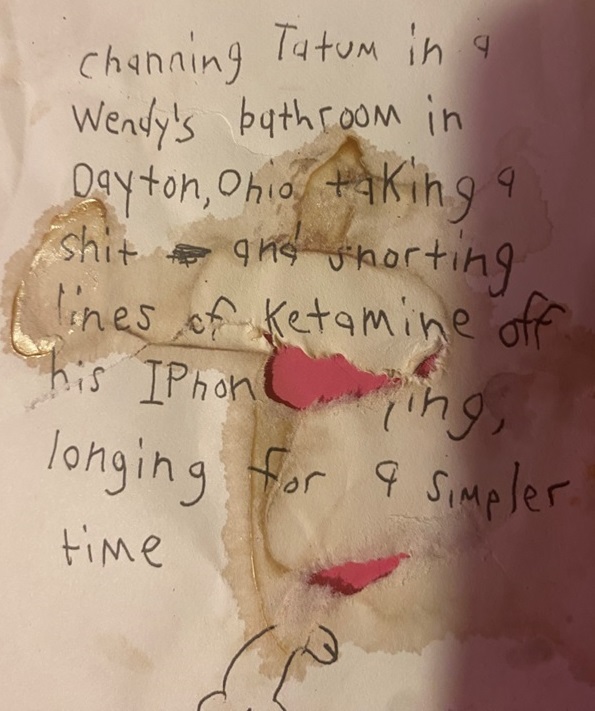 channing Tatum in a
Wendy's bathroom in
Dayton, Ohio taking a
shit and snorting
lines of Ketamine off
his IPhon
longing for a simpler
time